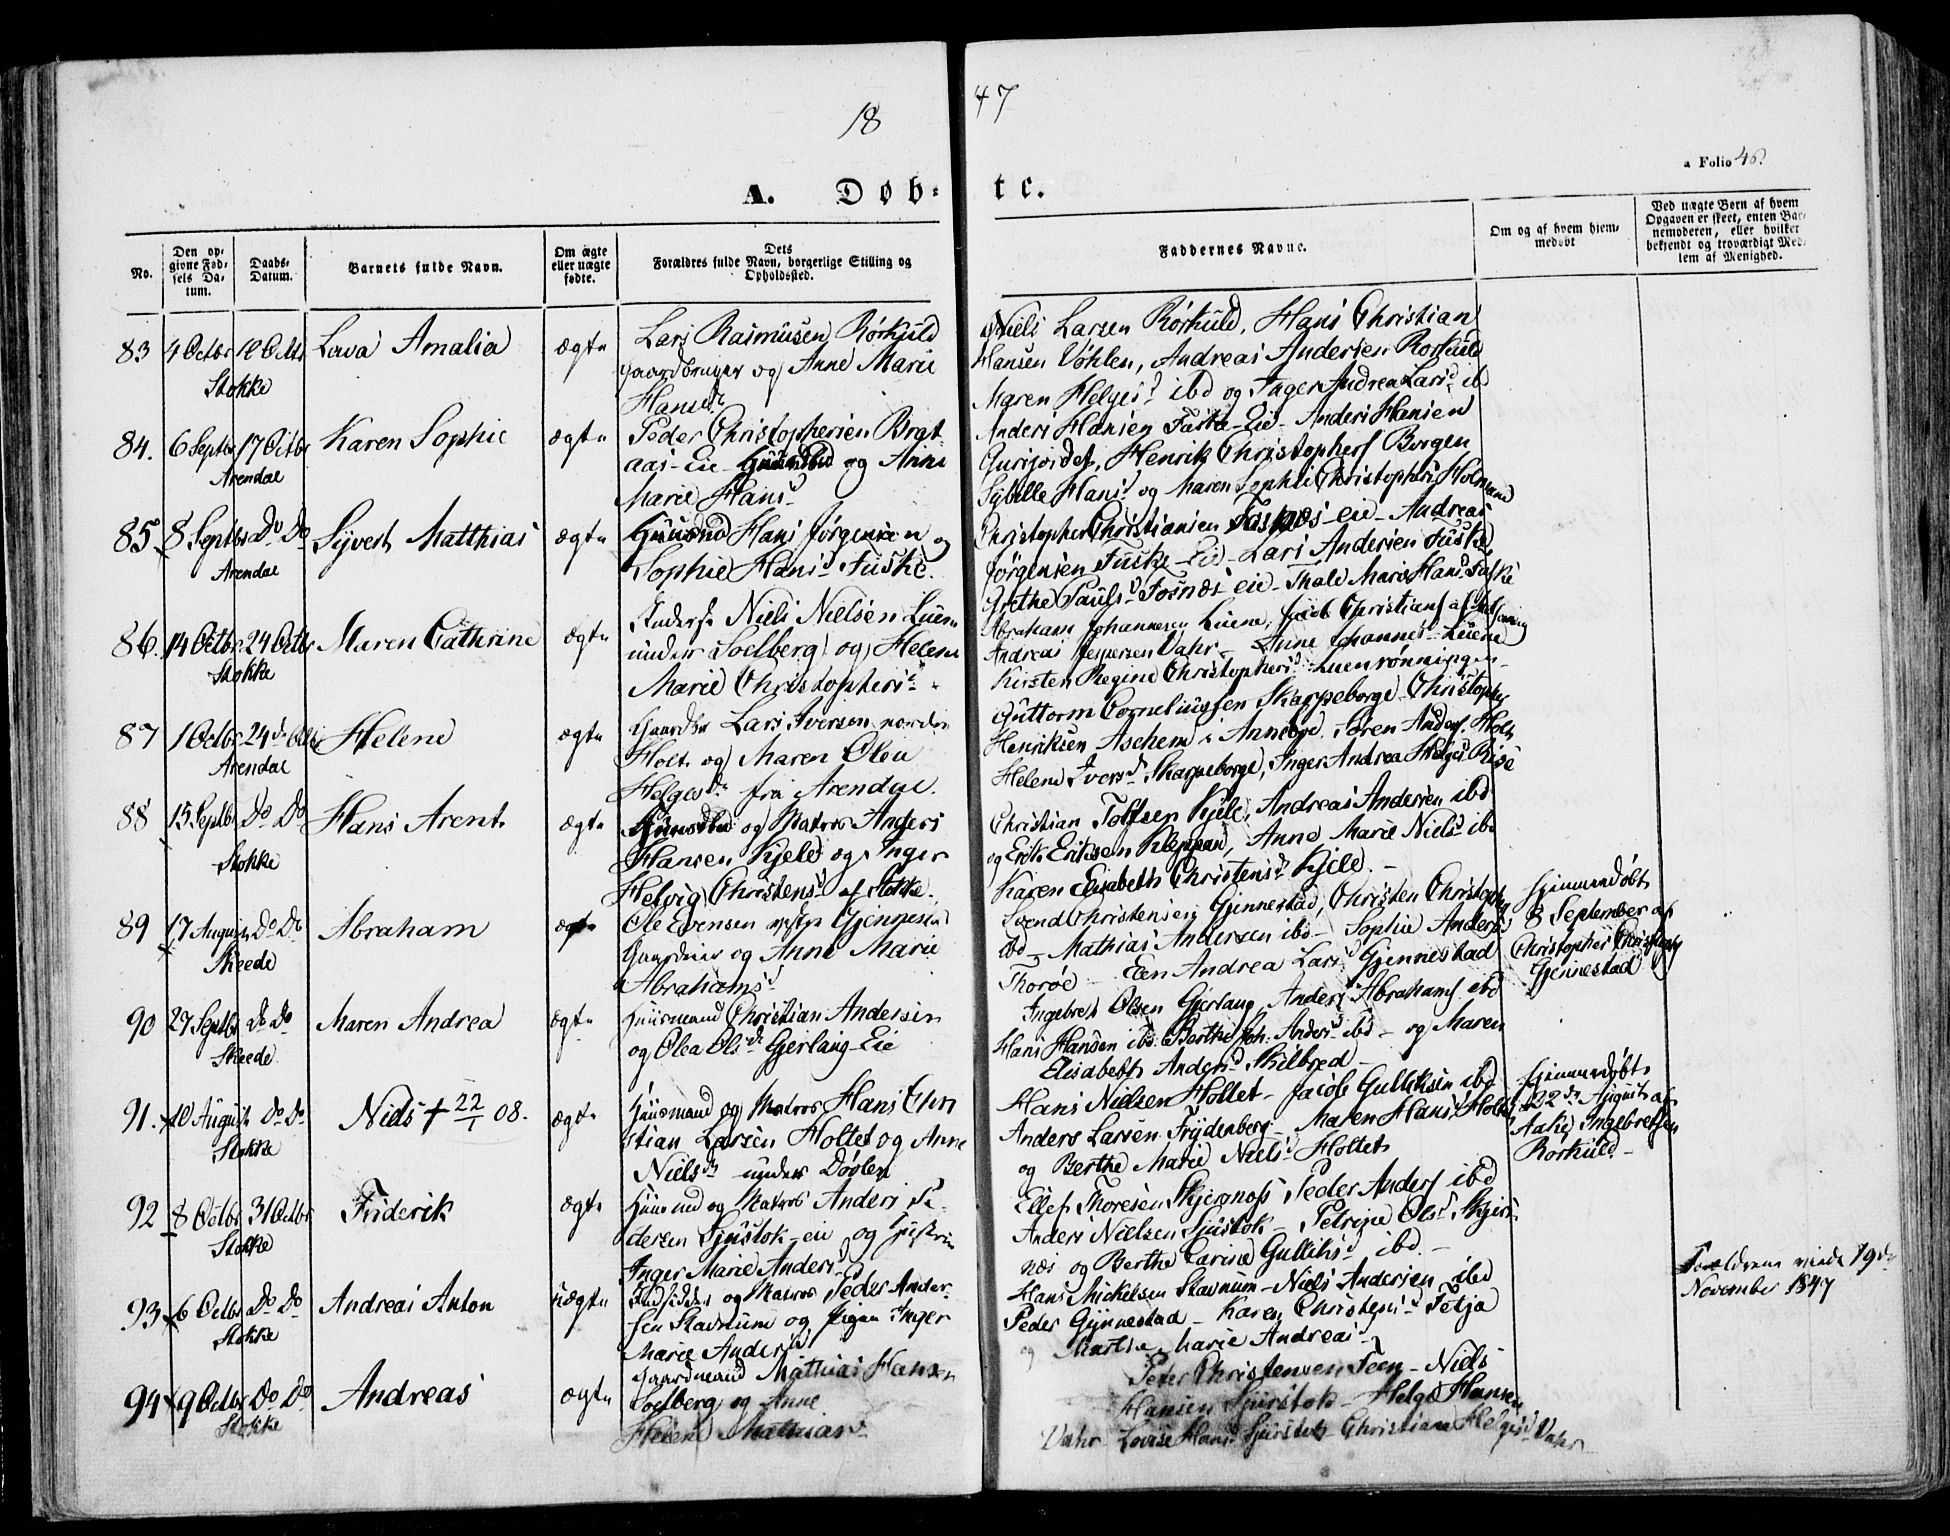 18
47
a Folio 46.
A. Døb-
te.
No.
Den opgivne Fødsels Datum.
Daabs-Datum.
Barnets fulde Navn.
Om ægte eller uægte fødte.
Dets Forældres fulde Navn, borgerlige Stilling og Opholdssted.
Faddernes Navne.
Om og af hvem hjemmedøbt
Ved uægte Børn af hvem Opgaven er skeet, enten Barnemoderen, eller hvilket bekjendt og troværdigt Medlem af Menighed.
83 4 Octbr 10 Octbr Lova Amalia ægte Lars Rasmusen Rørkuld
Gaardbruger og Anne Marie
Stokke
Hansdr
Niels Larsen Rørkuld, Hans Christian
Hansen Vøhlen, Andreas Andersen Rorkuld
Maren Helgesd ibd og Inger Andrea Larsd ib
84. 6 Septbr 17 Octbr Karen Sophie ægte Peder Christophersen Brat
aas-Eie og Anne
Arendal
Marie Hansd
Anders Hansen Eie Anders Hansen
Henrik Christophers Borgen
Sybille Hansd og Maren Sophie Christophersd
85. 8 Septbr Do Do Syvert Matthias ægte Huusmd Hans Jørgensen og
Arendal
Sophie Hansd Fuske.
Christopher Christiansen Fosnæs-eie Andreas
Jørgensen Fuske-Eie Lars Andersen Fuske
Grethe Paulsd Fosnæs eie Thale Marie Hansd Fuske
86. 14 Octbr 24 Octbr Maren Cathrine ægte Niels Nielsen Luene
under Soelberg og Helene
Stokke
Marie Christophersd
Abraham Johannesen Luene, Jacob Christians
Andreas Jespersen Vahr Anne Johannesd Luene
Kirsten Regine Christophersd Luenrønningen
87 1 Octbr 24de Octbr Helene ægte Gaardbr Lars Iversen nordre
Holt og Maren Olea
Arendal
Helgesdr fra Arendal.
Guttorm Corneliussen Skarpeborge Christopher
Henriksen Aschem Søren Anders. Holt
Helene Iversd Skarpeborge, Inger Andrea Helgesd Rise
88 15 Septbr Do Do Hans Arent ægte og Matros Anders
Hansen Kjele og Inger
Stokke
Helvig Christensd af Stokke.
Christian Tolfsen Kjele, Andreas Andersen ibd
og Erik Eriksen Kleppan, Anne Marie Nielsd ibd
Karen Elisabeth Christensd Kjele.
89 17 August Do Do Abraham ægte Ole Evensen vestre Gjennestad
Gaardmd og Anne Marie
Skeede
Abrahamsd
Svend Christensen Gjennestad, Christen Christoph
ibd Mathias Andersen ibd Sophie Andersd
Thorøe Een Andrea Larsd Gjennestad
hjemmedøbt
8 September af
Christopher
Gjennestad
90 27 Septbr Do Do Maren Andrea ægte Huusmand Christian Andersen
og Olea Olsdr Gjerlaug-Eie
Skeede
Ingebret Olsen Gjerlaug, Anders Abrahams ibd
Hans Hansen ibd. Berthe Joh. Andersd ibd og Maren
Elisabeth Andersd Skilbred
91. 10 August Do Do Niels + 22/1 08. ægte Huusmand og Matros Hans Chri
stian Larsen Holtet og Anne
Stokke
Nielsdr under Døvlen
Hans Nielsen Holtet Jacob Gulliksen ibd
Anders Larsen Frydenberg Maren Hansd Holtet
og Berthe Marie Nielsd Holtet
hjemmedøbt
22de August af
Aake Ingebretsen
Rorkuld
92 8 Octbr 31 Octbr Friderik ægte Huusmd og Matros Anders Pe
dersen Sjuestok-eie og Hustru
Stokke
Inger Marie Andersd
Ellef Thoresen Skjersnæss Peder Anders ibd
Anders Nielsen Sjuestok Petrine Olsd Skjers
næs og Berthe Carine Gulliksd ibd.
93 6 Octbr Do Do Andreas Anton uægte Indsidder og Matros Peder Ander
sen Skavnum og Pigen Inger
Stokke
Marie Andersd
Hans Mickelsen Skavnum Niels Andersen ibd
Peder Gjennestad Karen Christensd Tetja
og Marthe Marie Andreasd
Forældrene viede 19de
November 1847
94 9 Octbr Do Do Andreas ægte Gaardmand Mathias Hansen
Soelberg og Anne
Stokke
Helene Mathiasd
Peter Christensen Teen Niels
Hansen Sjuestok Helge Hansen
Vahr Lovise Hansd Sjuestok Christiane Helgesd Vahr